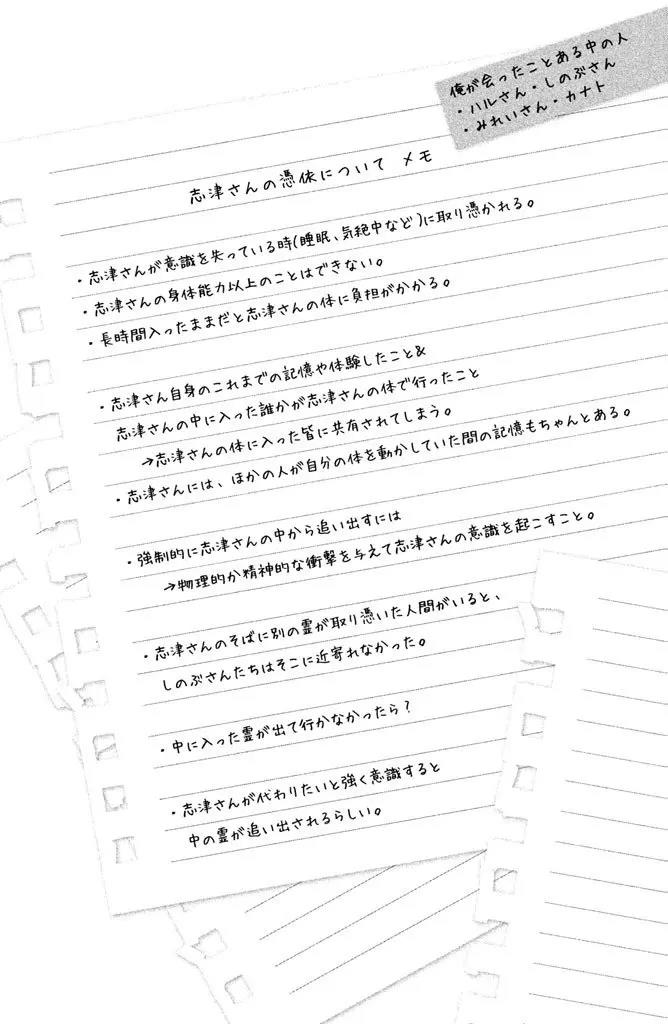 俺が会ったことある中の人
・ハルさん・しのぶさん
・みれいさん・カナト
志津さんの憑依について メモ
・志津さんが意識を失っている時(睡眠、気絶中など)に取り憑かれる。
・志津さんの身体能力以上のことはできない。
・長時間入ったままだと志津さんの体に負担がかかる。
・志津さん自身のこれまでの記憶や体験したこと&
志津さんの中に入った誰かが志津さんの体で行ったこと
→志津さんの体に入った皆に共有されてしまう。
・志津さんには、ほかの人が自分の体を動かしていた間の記憶もちゃんとある。
・強制的に志津さんの中から追い出すには
→物理的か精神的な衝撃を与えて志津さんの意識を起こすこと。
・志津さんのそばに別の霊が取り憑いた人間がいると、
しのぶさんたちはそこに近寄れなかった。
・中に入った霊が出て行かなかったら？
・志津さんが代わりたいと強く意識すると
中の霊が追い出されるらしい。